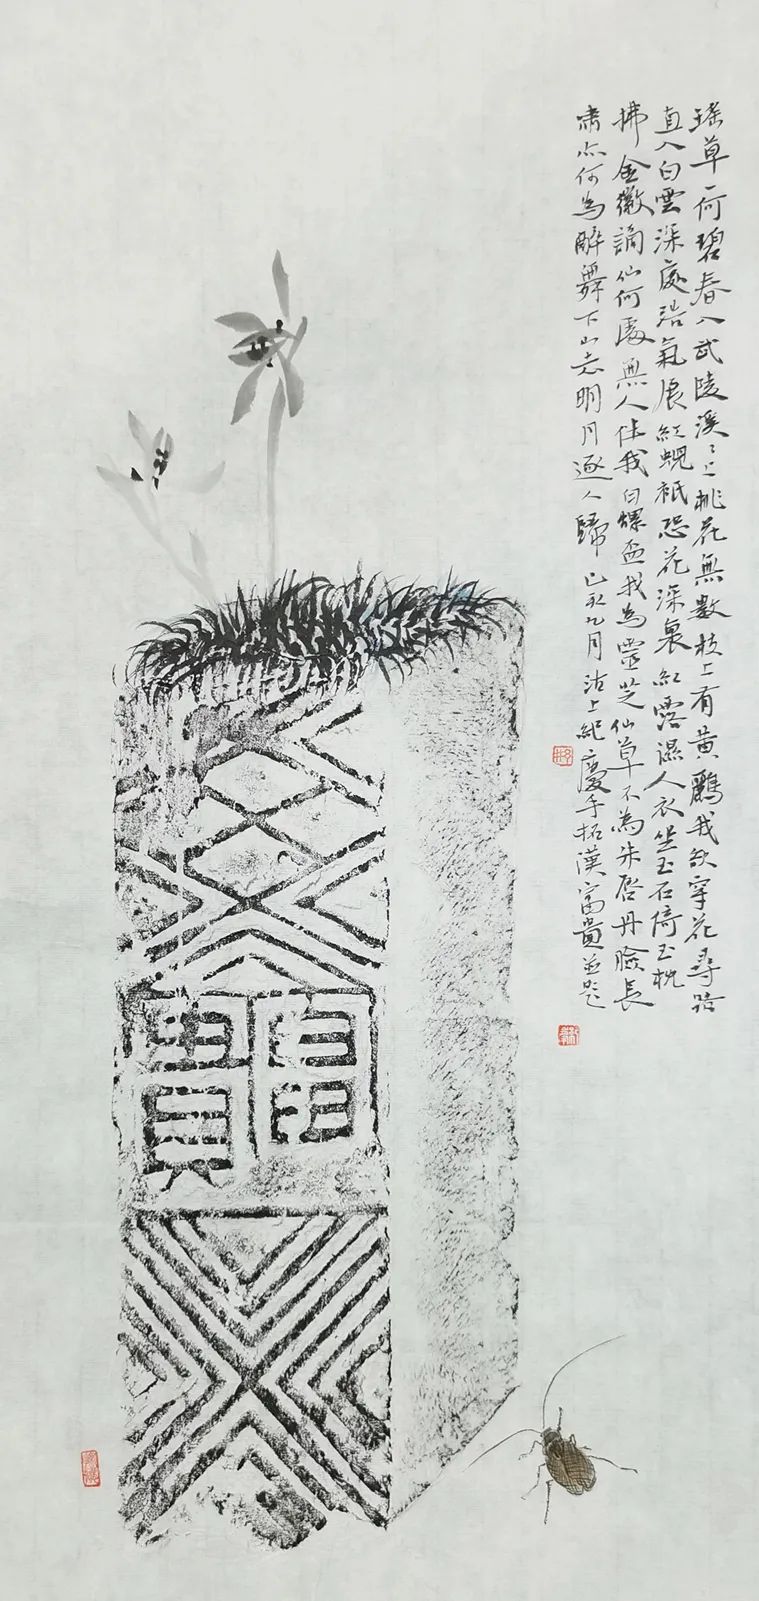 瑤草一何碧春入武陵溪〻上桃花無數枝上有黃鸝我欲穿花尋路
直入白雲深處浩氣展紅蜺祇恐花深裏紅露濕人衣坐玉石倚玉枕
拂金徽謫仙何處無人伴我白螺盃我為靈芝仙草不為朱唇丹臉長
嘯亦何為醉舞下山去明月逐人歸 己亥九月沽上紀慶手拓漢富貴並題
富貴